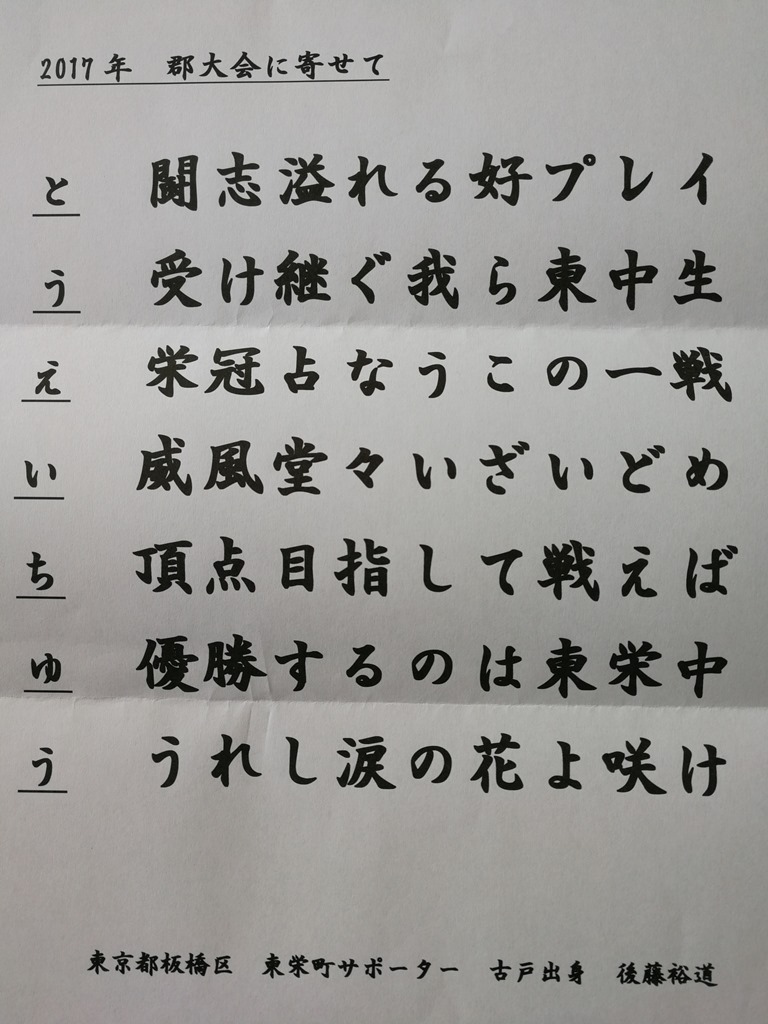 2017年 郡大会に寄せて
と 闘志溢れる好プレイ
う 受け継ぐ我ら東中生
え 栄冠占なうこの一戦
い 威風堂々いざいどめ
ち 頂点目指して戦えば
ゆ 優勝するのは東栄中
う うれし涙の花よ咲け
東京都板橋区 東栄町サポーター 古戸出身 後藤裕道